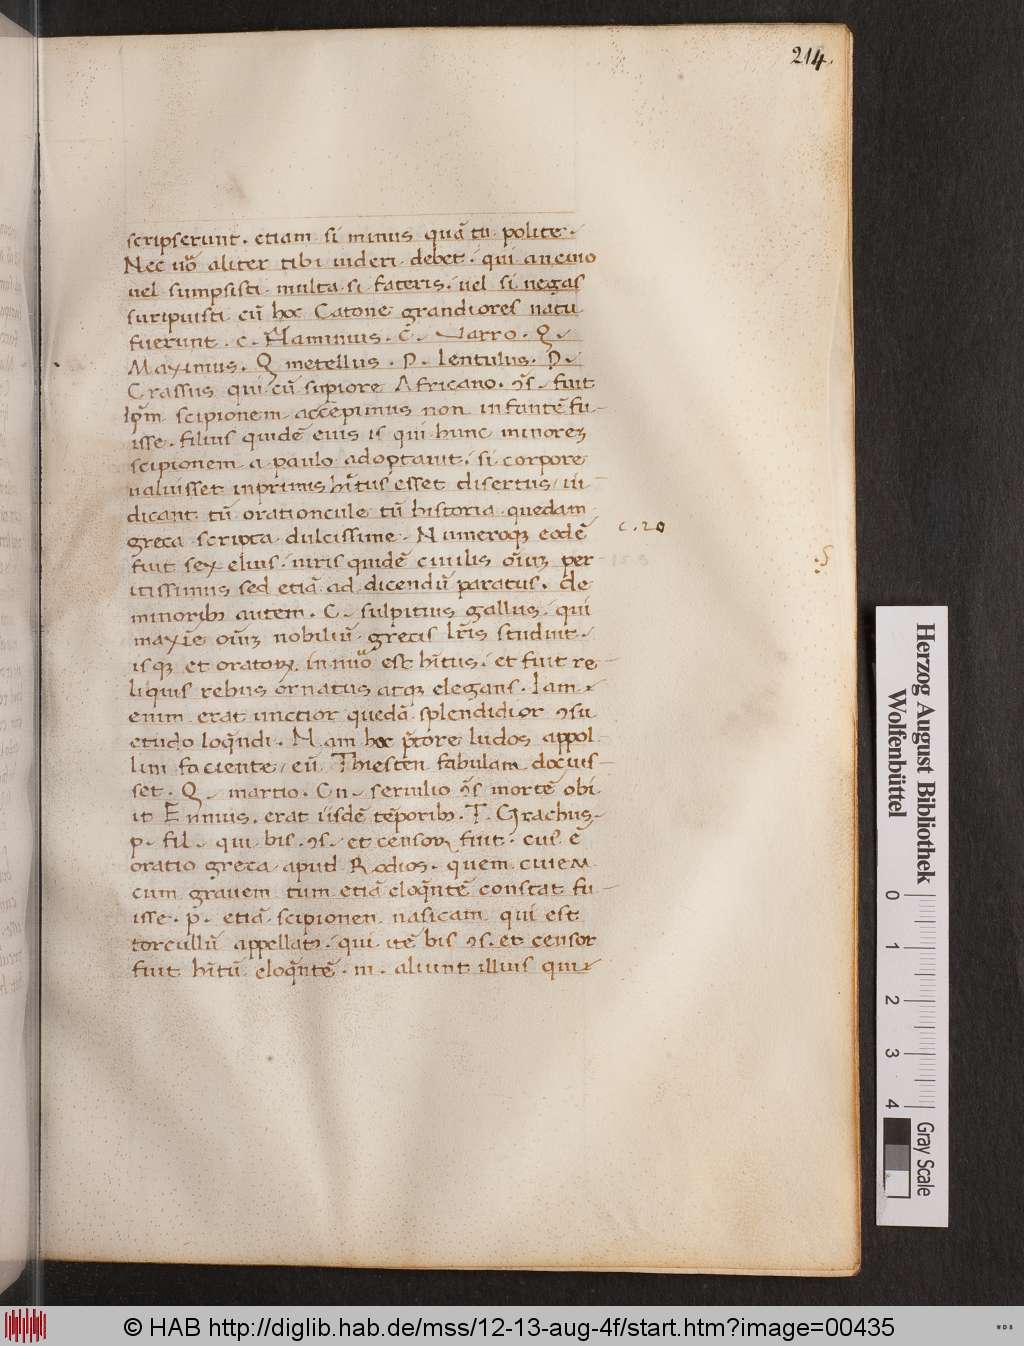 214.
scripserunt. etiam si minus quā tu polite.
Nec uo aliter tibi uideri debet. qui a neuio
uel sumpsisti multa si fateris. uel si negas
suripuisti cū hoc Catone grandiores natu
fuerunt. C. Flaminius. C. Varro. Q.
Maximus. Q metellus. P. lentulus. P.
Crassus qui cū supiore Africano. fuit
Ipm scipionem accepimus non infantē fu-
isse. filius quidē eius is qui hunc minorem
scipionem a paulo adoptauit. si corpore
ualuisset inprimis hītus esset disertus in-
dicant tū oratiuncule tū historia quedam
greca scripta dulcissime. Numeroq eodē
c. 20
fuit sex elius. iuris quidē ciuilis oīum per
itissimus sed etiā ad dicendū paratus. de
minorib autem. C. sulpitius gallus. qui
maxīe oīum nobiliū grecis lrīs studuit.
isq et orator, in nuo est hītus. et fuit re-
liquis rebus ornatus atq elegans. Iam
enim erat unctior quedā splendidior ɔsu
etudo loqndi. Nam hoc p̄tore ludos appol
lini faciente, cū Thiesten fabulam docuis-
set. Q. martio. Cn. seruilio ɔs mortē obi
it Ennius. erat iisdē tēporib. T. Grachus.
p. fil. qui bis. ɔs. et censor fuit. cuis ē
oratio greca apud Rodios. quem ciuem
cum grauem tum etiā eloqntē constat fu-
isse. p. etiā scipionen nasicam qui est
torcullū appellat. qui itē bis ɔs. et censor
fuit hītū eloqntē. m. aliunt illius qui
Herzog August Bibliothek
Wolfenbüttel
0 1 2 3 4
Gray Scale
© HAB http://diglib.hab.de/mss/12-13-aug-4f/start.htm?image=00435